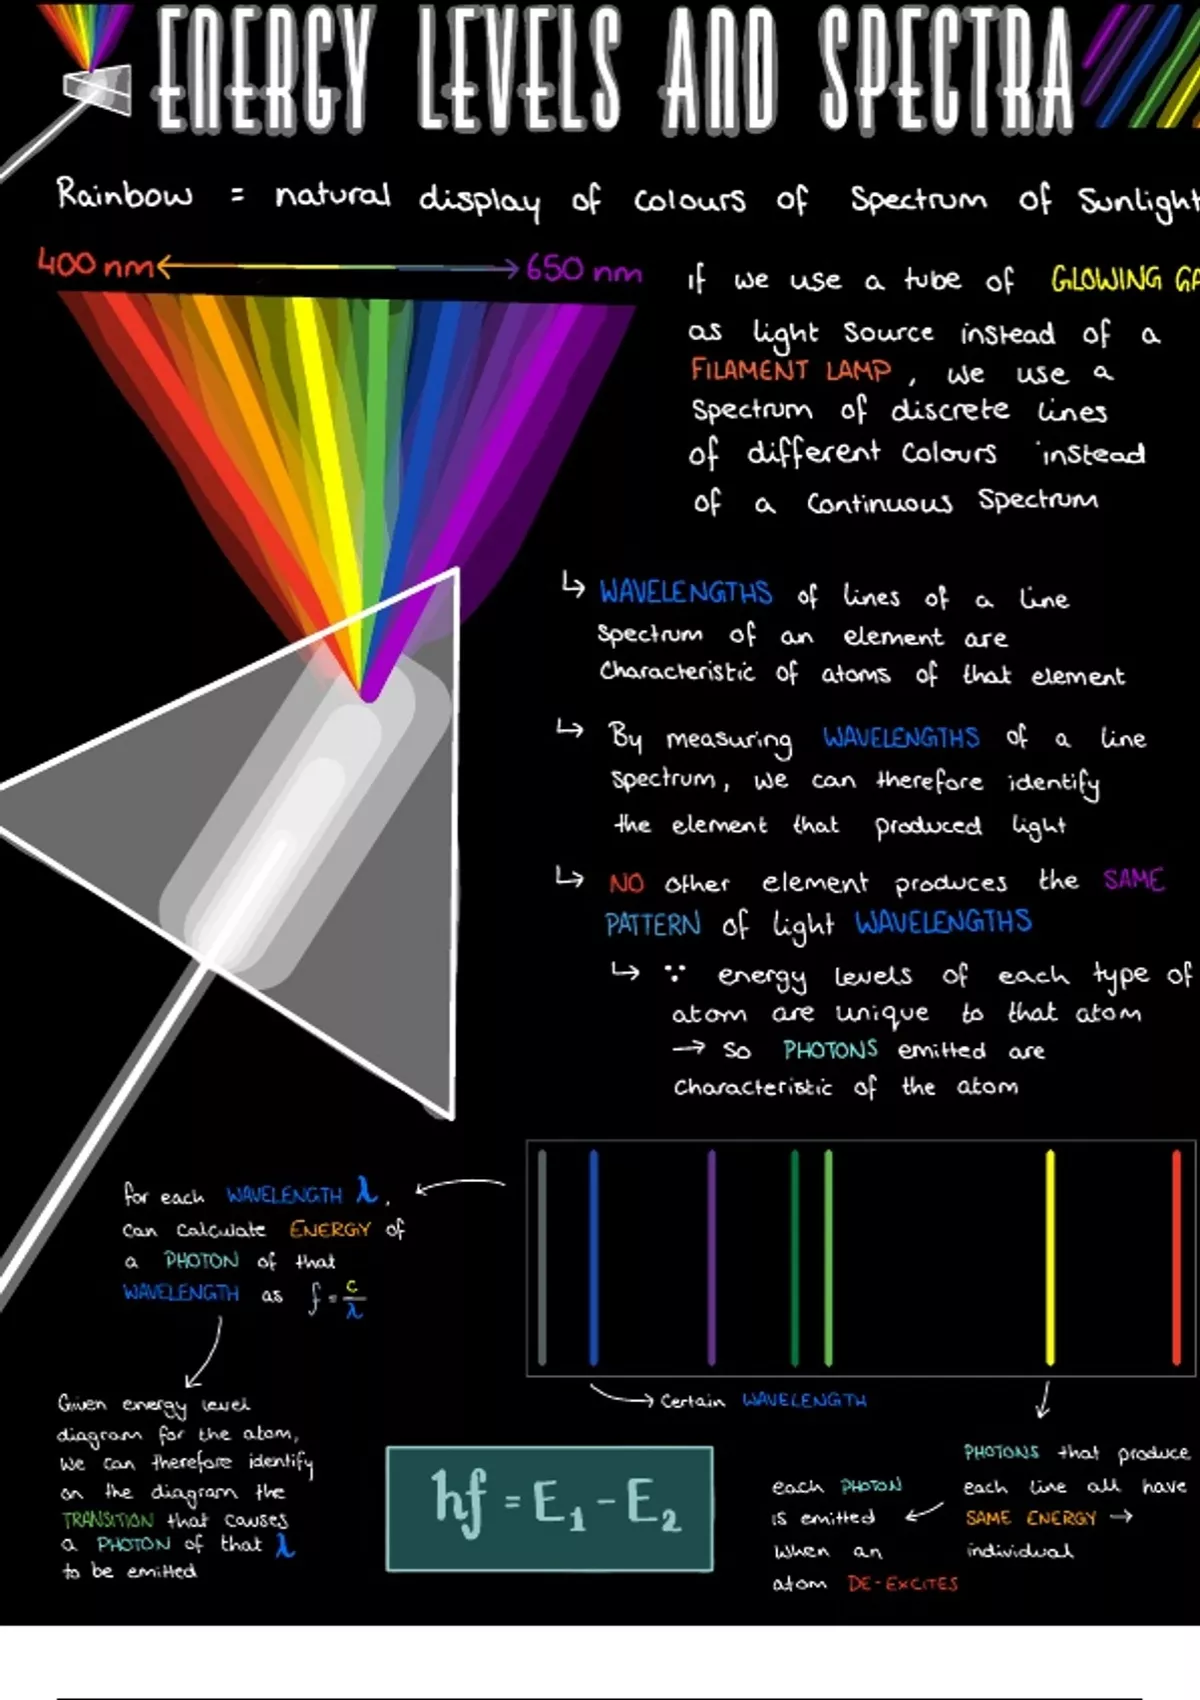 ENERGY LEVELS AND SPECTRA
Rainbow = natural display of colours of spectrum of sunlight
400 nm
650 nm
if we use a tube of GLOWING GA
as light source instead of a
FILAMENT LAMP, we use a
spectrum of discrete lines
of different colours instead
of a continuous spectrum
↳ WAVELENGTHS of lines of a line
spectrum of an element are
characteristic of atoms of that element
↳ By measuring WAVELENGTHS of a line
spectrum, we can therefore identify
the element that produced light
↳ NO other element produces the SAME
PATTERN of light WAVELENGTHS
↳ ∵ energy levels of each type of
atom are unique to that atom
→ so PHOTONS emitted are
characteristic of the atom
for each WAVELENGTH λ,
can calculate ENERGY of
a PHOTON of that
WAVELENGTH as f = c/λ
Given energy level
diagram for the atom,
we can therefore identify
on the diagram the
TRANSITION that causes
a PHOTON of that λ
to be emitted
→ Certain WAVELENGTH
hf = E₁ - E₂
PHOTONS that produce
each line all have
SAME ENERGY →
individual
each PHOTON
is emitted
when an
atom DE-EXCITES